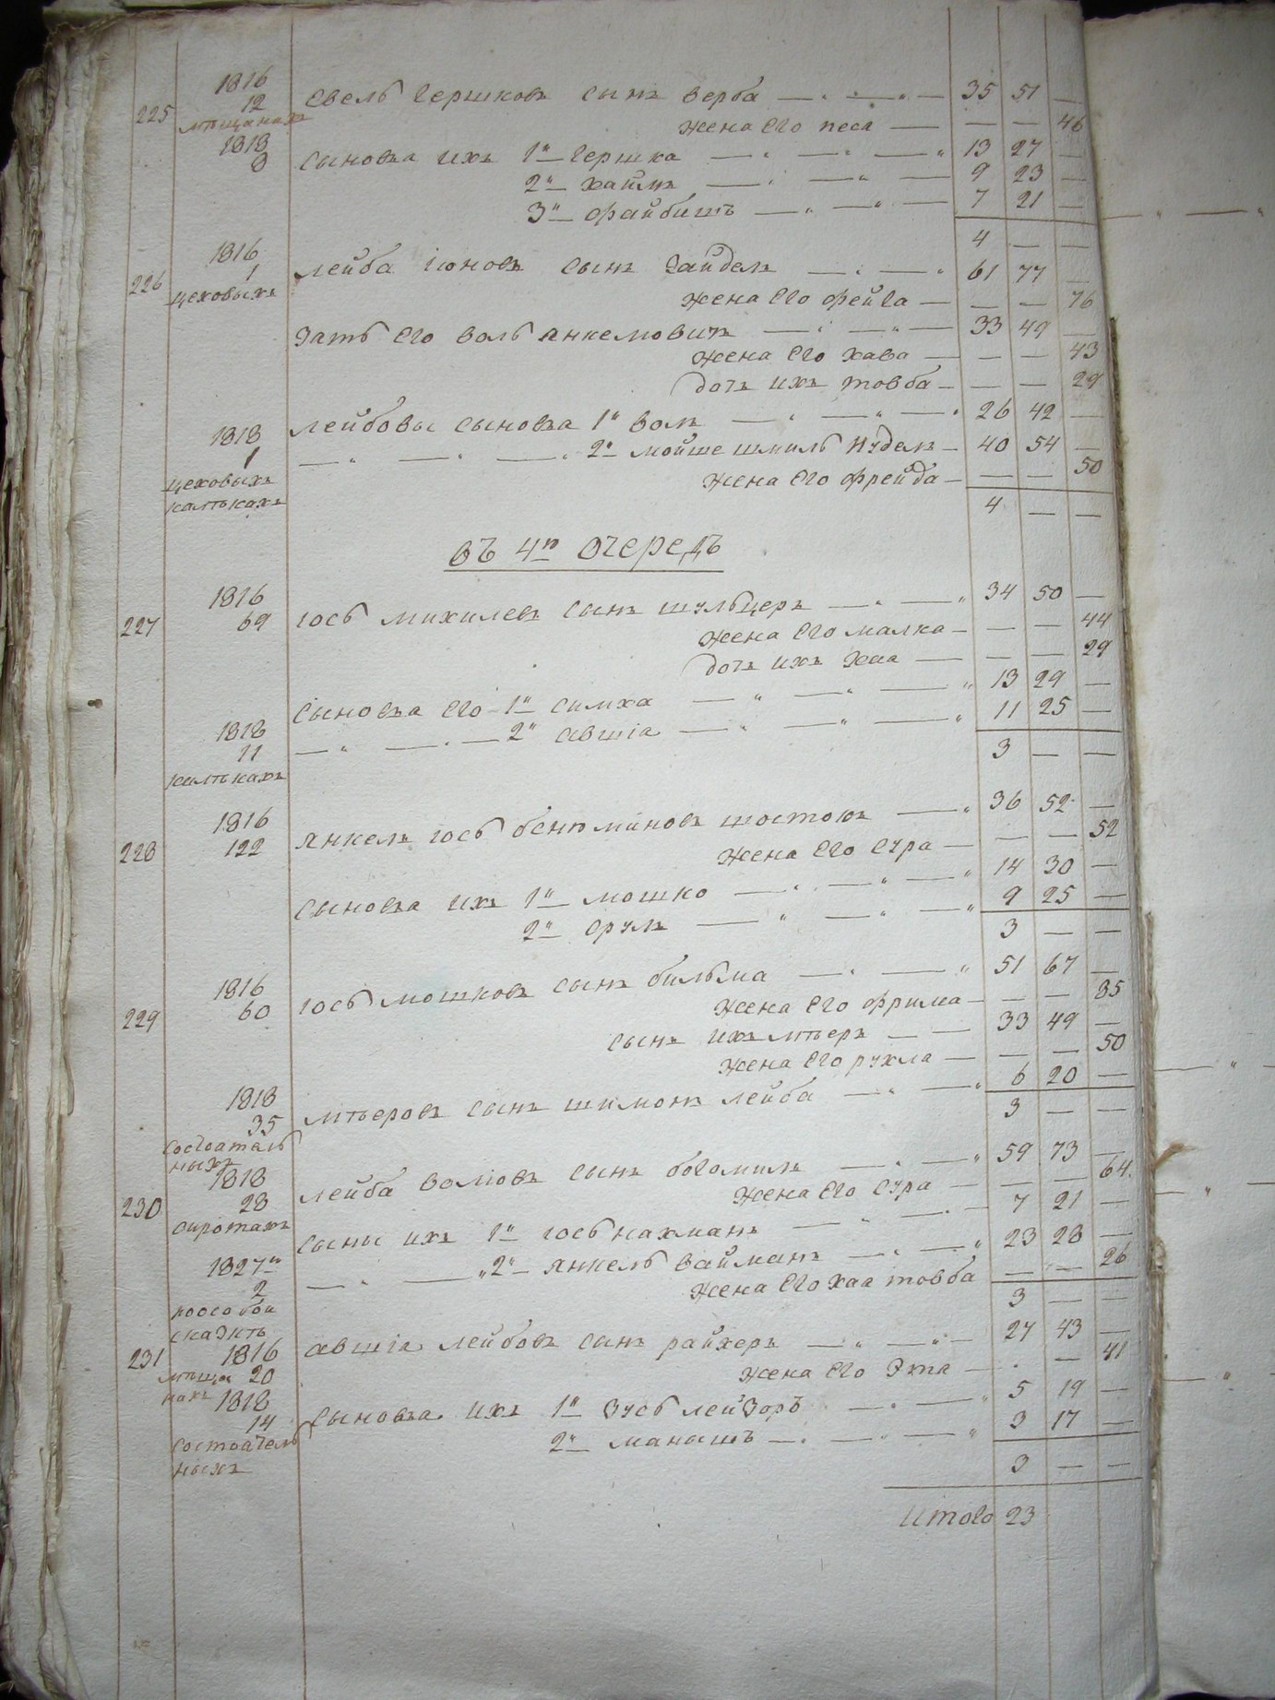 1816
225 12 Евель Гершковъ сынъ верба — 35 51 —
мѣщанахъ жена его песа — — — 46
1818
8 сыновья ихъ 1й Гершка — 13 27 —
2й хаймъ — 9 23 —
3й файбишъ — 7 21 —
4 — —
1816
226 1 лейба іоновъ сынъ Зайдель — 61 77 —
цеховыхъ жена его фейга — — — 76
зять его воль янкелмовичъ — 33 49 —
жена его хава — — — 43
дочь ихъ товба — — — 29
лейбовы сыновья 1й вол — 26 42 —
1818
1 2й мойше шмиль Нудель — 40 54 —
цеховыхъ жена его фрейда — — — 50
калѣкахъ
4 — —
Въ 4й очередь
1816
227 69 іось михилевъ сынъ шульцеръ — 34 50 —
жена его малка — — — 44
дочь ихъ хаа — — — 29
сыновья его 1й симха — 13 29 —
1818
11 2й авшіа — 11 25 —
калѣкахъ
3 — —
1816
228 122 янкель іось бенюминовъ шостокъ — 36 52 —
жена его сура — — — 52
сыновья ихъ 1й мошко — 14 30 —
2й сруль — 9 25 —
3 — —
1816
229 60 іось мошковъ сынъ бильма — 51 67 —
жена его фрима — — — 85
сынъ ихъ мѣеръ — 33 49 —
жена его рухля — — — 50
1818
35 мѣеровъ сынъ шимонъ лейба — 6 20 —
состоятель
ныхъ
3 — —
1818
230 28 лейба волковъ сынъ богомиль — 59 73 —
сиротахъ жена его сура — — — 64
сыны ихъ 1й іось нахманъ — 7 21 —
1827го
2 2й янкель вайманъ — 23 28 —
по особой жена его хаа товба — — — 26
сказкѣ
3 — —
231 1816 авшіа лейбовъ сынъ райхеръ — 27 43 —
мѣща 20 жена его Эта — — 41
нахъ 1818
14 сыновья ихъ 1й Зусь лейзоръ — 5 19 —
состоятель 2й манашъ — 3 17 —
ныхъ
3 — —
Итого 23